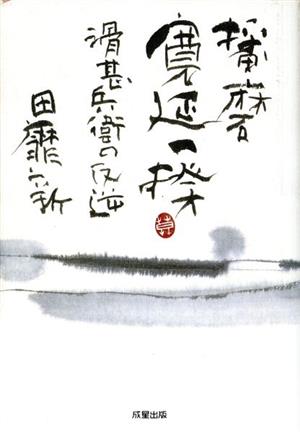 播磨
寛延一揆
滑甚兵衛の反逆
田靡新
成星出版